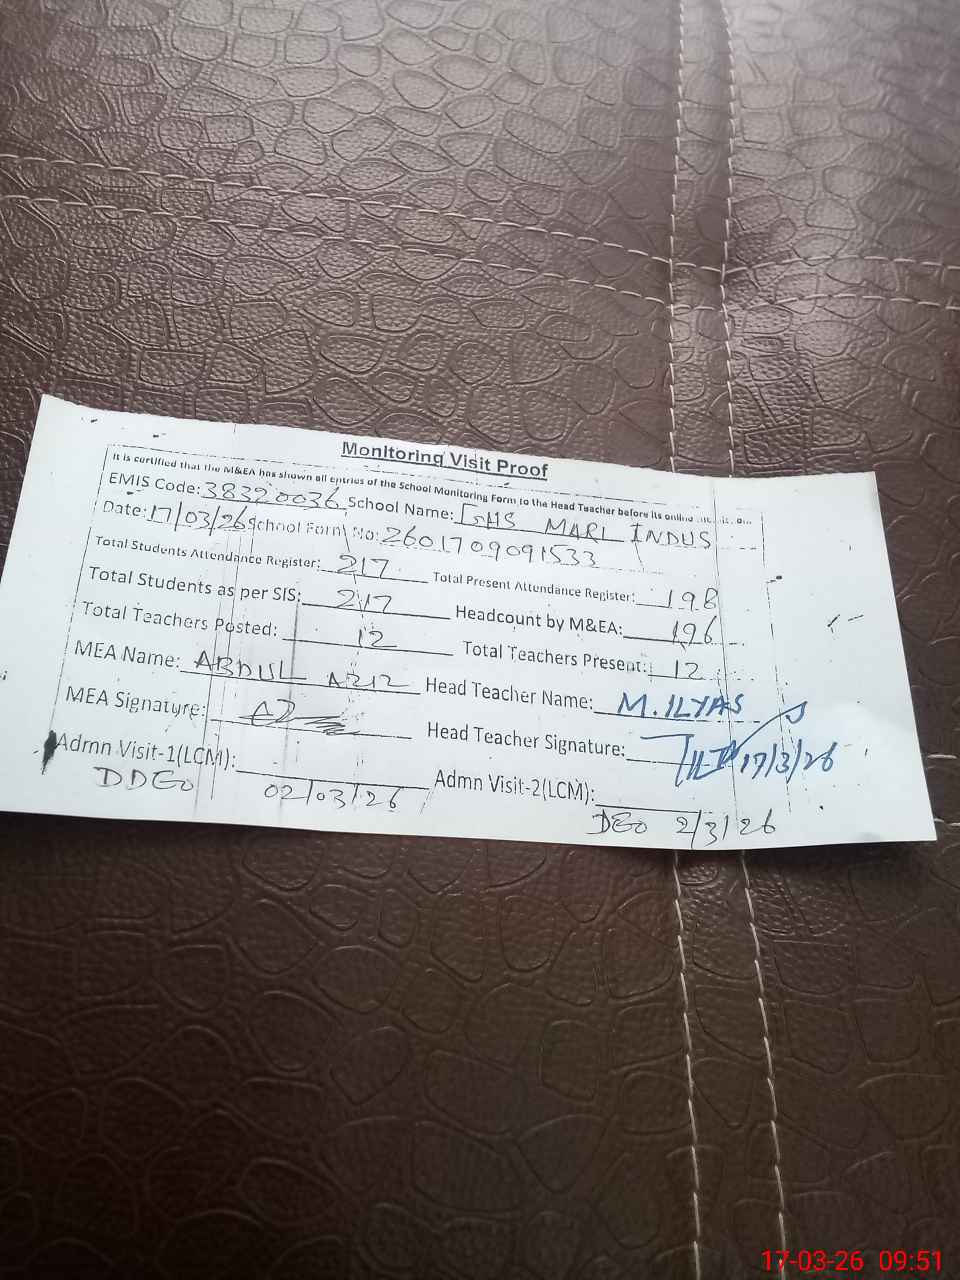 Monitoring Visit Proof
It is certified that the M&EA has shown all entries of the School Monitoring Form to the Head Teacher before its online
EMIS Code: 38320036 School Name: GHS MARI INDUS
Date: 17/03/26 School Form No: 2601709091533
Total Students Attendance Register: 217 Total Present Attendance Register: 198
Total Students as per SIS: 217 Headcount by M&EA: 196
Total Teachers Posted: 12 Total Teachers Present: 12
MEA Name: ABDUL AZIZ Head Teacher Name: M. ILYAS
MEA Signature: Head Teacher Signature: 17/3/26
Admn Visit-1(LCM): Admn Visit-2(LCM):
DDEO 02/03/26 DEO 2/3/26
17-03-26 09:51